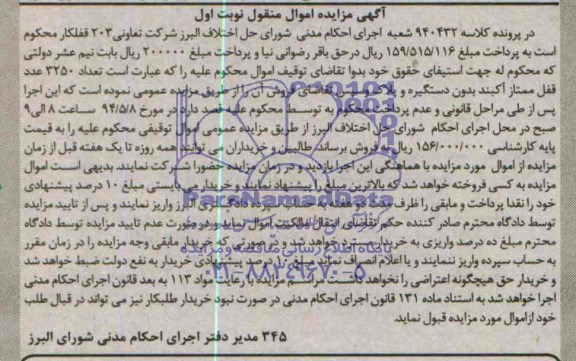 آگهی مزایده اموال منقول نوبت اول
در پرونده کلاسه ۹۴۰۴۳۲ شعبه اجرای احکام مدنی شورای حل اختلاف البرز شرکت تعاونی ۲۰۳ قفلکار محکوم
است به پرداخت مبلغ ۱۵۹/۵۱۵/۱۱۶ ریال درحق باقر رضوانی نیا و پرداخت مبلغ ۲۰۰۰۰۰ ریال بابت نیم عشر دولتی
که محکوم له جهت استیفای حقوق خود بدوا تقاضای توقیف اموال محکوم علیه را که عبارت است تعداد ۳۲۵۰ عدد
قفل ممتاز آکیند بدون دستگیره و پلاک تقاضای فروش آن را از طریق مزایده عمومی نموده است که این اجرا
پس از طی مراحل قانونی و عدم پرداخت محکوم به توسط محکوم علیه قصد دارد در مورخ ۹۴/۵/۸ ساعت ۸ الی ۹
صبح در محل اجرای احکام شورای حل اختلاف البرز از طریق مزایده عمومی اموال توقیفی محکوم علیه را به قیمت
پایه کارشناسی ۱۵۶/۰۰۰/۰۰۰ ریال به فروش برساند طالبین و خریداران می توانند همه روزه تا یک هفته قبل از زمان
مزایده از اموال مورد مزایده با هماهنگی این اجرا بازدید و در زمان مزایده حضورا شرکت نمایند. بدیهی است اموال
مزایده به کسی فروخته خواهد شد که بالاترین مبلغ را پیشنهاد نمایند و خریدار می بایستی مبلغ ۱۰ درصد پیشنهادی
خود را نقدا پرداخت و مابقی را ظرف البرز واریز نمایند و پس از تایید مزایده
توسط دادگاه محترم صادر کننده حکم تقاضای انتقال مالکیت اموال نمایند و در صورت عدم تایید مزایده توسط دادگاه
محترم مبلغ ده درصد واریزی به خریدار مسترد خواهد شد و در صورتی که خریدار مابقی وجه مزایده را در زمان مقرر
به حساب سپرده واریز ننمایند و یا اعلام انصراف نماید مبلغ ۱۰ درصد پیشنهادی خریدار به نفع دولت ضبط خواهد شد
و خریدار حق هیچگونه اعتراضی را نخواهد داشت مراسم مزایده با رعایت مواد ۱۱۳ به بعد قانون اجرای احکام مدنی
اجرا خواهد شد به استناد ماده ۱۳۱ قانون اجرای احکام مدنی در صورت نبود خریدار طلبکار نیز می تواند در قبال طلب
خود از اموال مورد مزایده قبول نماید.
۳۴۵ مدیر دفتر اجرای احکام مدنی شورای البرز
ParsNamadData
۰۲۱-۸۸۳۴۹۶۷۰-۵